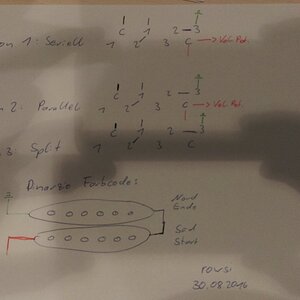 C 1 2 3
on 1: Seriell 1 2 3 C → Vol. Pot.
C 1 2 3
on 2: Parallel 1 2 3 C → Vol. Pot.
C 1 2 3
3: Split 1 2 3 C
Dimarzio Farbcode:
Nord
Ende
Süd
Start
rowsi
30.08.2016